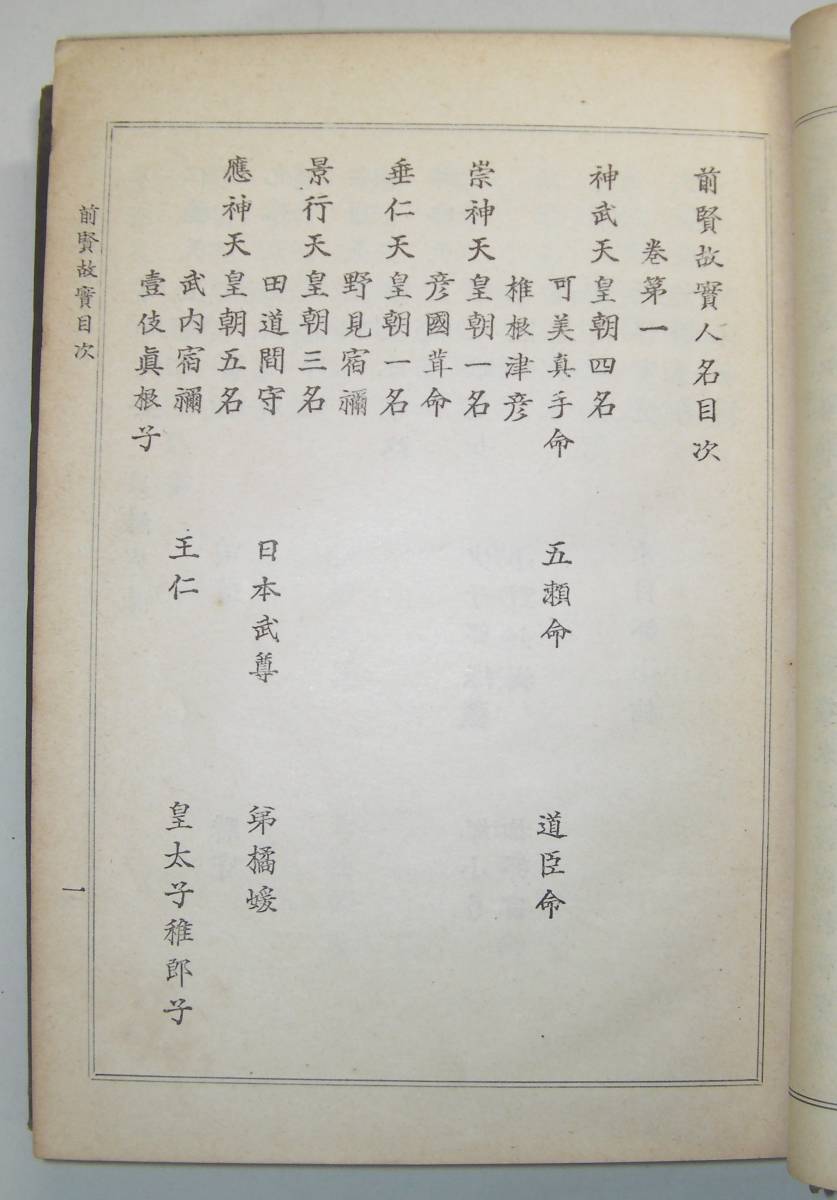 前賢故實人名目次
卷第一
神武天皇朝四名
可美真手命　五瀬命　道臣命
椎根津彦
崇神天皇朝一名
彦國葺命
垂仁天皇朝一名
野見宿禰
景行天皇朝三名
田道間守　日本武尊　弟橘媛
應神天皇朝五名
武内宿禰　王仁　皇太子稚郎子
壹伎眞根子
前賢故實目次
一